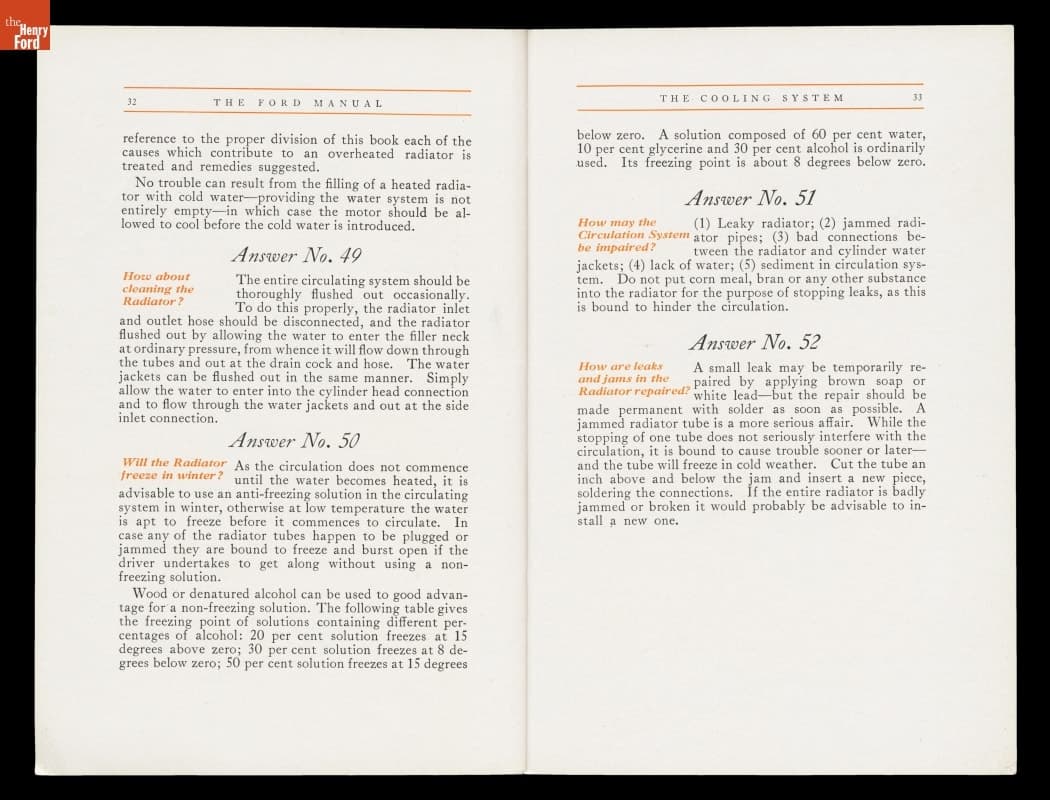 the
Henry
Ford
32
THE FORD MANUAL
reference to the proper division of this book each of the
causes which contribute to an overheated radiator is
treated and remedies suggested.
No trouble can result from the filling of a heated radia-
tor with cold water—providing the water system is not
entirely empty—in which case the motor should be al-
lowed to cool before the cold water is introduced.
Answer No. 49
How about
cleaning the
Radiator?
The entire circulating system should be
thoroughly flushed out occasionally.
To do this properly, the radiator inlet
and outlet hose should be disconnected, and the radiator
flushed out by allowing the water to enter the filler neck
at ordinary pressure, from whence it will flow down through
the tubes and out at the drain cock and hose. The water
jackets can be flushed out in the same manner. Simply
allow the water to enter into the cylinder head connection
and to flow through the water jackets and out at the side
inlet connection.
Answer No. 50
Will the Radiator
freeze in winter?
As the circulation does not commence
until the water becomes heated, it is
advisable to use an anti-freezing solution in the circulating
system in winter, otherwise at low temperature the water
is apt to freeze before it commences to circulate. In
case any of the radiator tubes happen to be plugged or
jammed they are bound to freeze and burst open if the
driver undertakes to get along without using a non-
freezing solution.
Wood or denatured alcohol can be used to good advan-
tage for a non-freezing solution. The following table gives
the freezing point of solutions containing different per-
centages of alcohol: 20 per cent solution freezes at 15
degrees above zero; 30 per cent solution freezes at 8 de-
grees below zero; 50 per cent solution freezes at 15 degrees
THE COOLING SYSTEM
33
below zero. A solution composed of 60 per cent water,
10 per cent glycerine and 30 per cent alcohol is ordinarily
used. Its freezing point is about 8 degrees below zero.
Answer No. 51
How may the
Circulation System
be impaired?
(1) Leaky radiator; (2) jammed radi-
ator pipes; (3) bad connections be-
tween the radiator and cylinder water
jackets; (4) lack of water; (5) sediment in circulation sys-
tem. Do not put corn meal, bran or any other substance
into the radiator for the purpose of stopping leaks, as this
is bound to hinder the circulation.
Answer No. 52
How are leaks
and jams in the
Radiator repaired?
A small leak may be temporarily re-
paired by applying brown soap or
white lead—but the repair should be
made permanent with solder as soon as possible. A
jammed radiator tube is a more serious affair. While the
stopping of one tube does not seriously interfere with the
circulation, it is bound to cause trouble sooner or later—
and the tube will freeze in cold weather. Cut the tube an
inch above and below the jam and insert a new piece,
soldering the connections. If the entire radiator is badly
jammed or broken it would probably be advisable to in-
stall a new one.